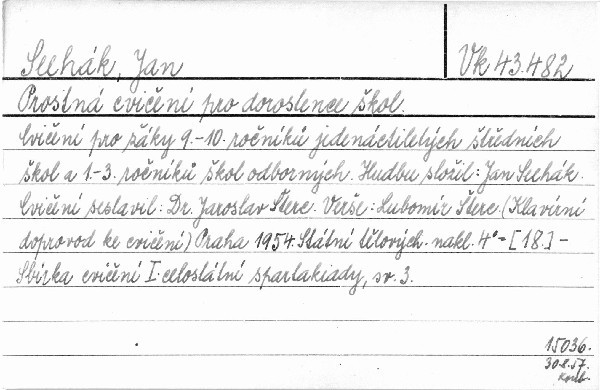 Seehák, Jan
Vk 43.482
Prostná cvičení pro dorostence škol.
Cvičení pro žáky 9.-10. ročníků jedenáctiletých středních
škol a 1.-3. ročníků škol odborných. Hudbu složil: Jan Seehák.
Cvičení sestavil: Dr. Jaroslav Šterc. Verše: Lubomír Šterc. (Klavírní
doprovod ke cvičení) Praha 1954 Státní tělových. nakl. 4° - [18.] -
Sbírka cvičení I. celostátní spartakiady, sv. 3.
15036.
30.8.57.